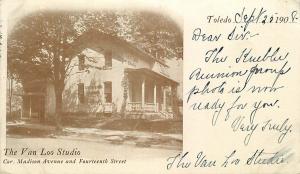 Toledo, Sept 25 1908
Dear Sir-
The Kuebler
Reunion group
photo is now
ready for you.
Very truly,
The Van Loo Studio
The Van Loo Studio
Cor. Madison Avenue and Fourteenth Street